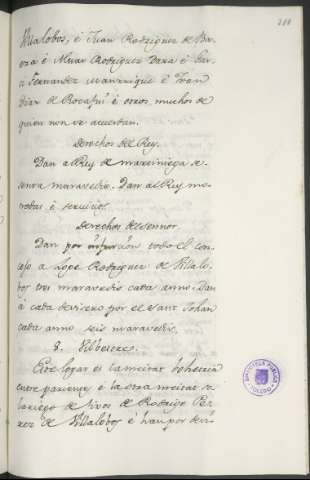 211
Villalobos, é Juan Rodriguez de Ba
eza é Alvar Rodriguez Daza é Gar
ci Fernandez Manrrique é Joan
Diaz de Rocafui é otros muchos de
quien non se acuerdan.
Derechos del Rey.
Dan al Rey de martiniega se
senta maravedis. Dan al Rey mo
nedas é servicios.
Derechos del sennor
Dan por infurcion todo el con
cejo a Lope Rodriguez de Villalo
bos tres maravedis cada anno. Dan
á cada devisero por el Sant Johan
cada anno seis maravedis.
8.
Este logar es la meitat behetria
entre parientes é la otra meitat so
lariego de fijos de Rodrigo Pe
rez de Villalobos é han por devi
BIBLIOTECA PUBLICA
TOLEDO